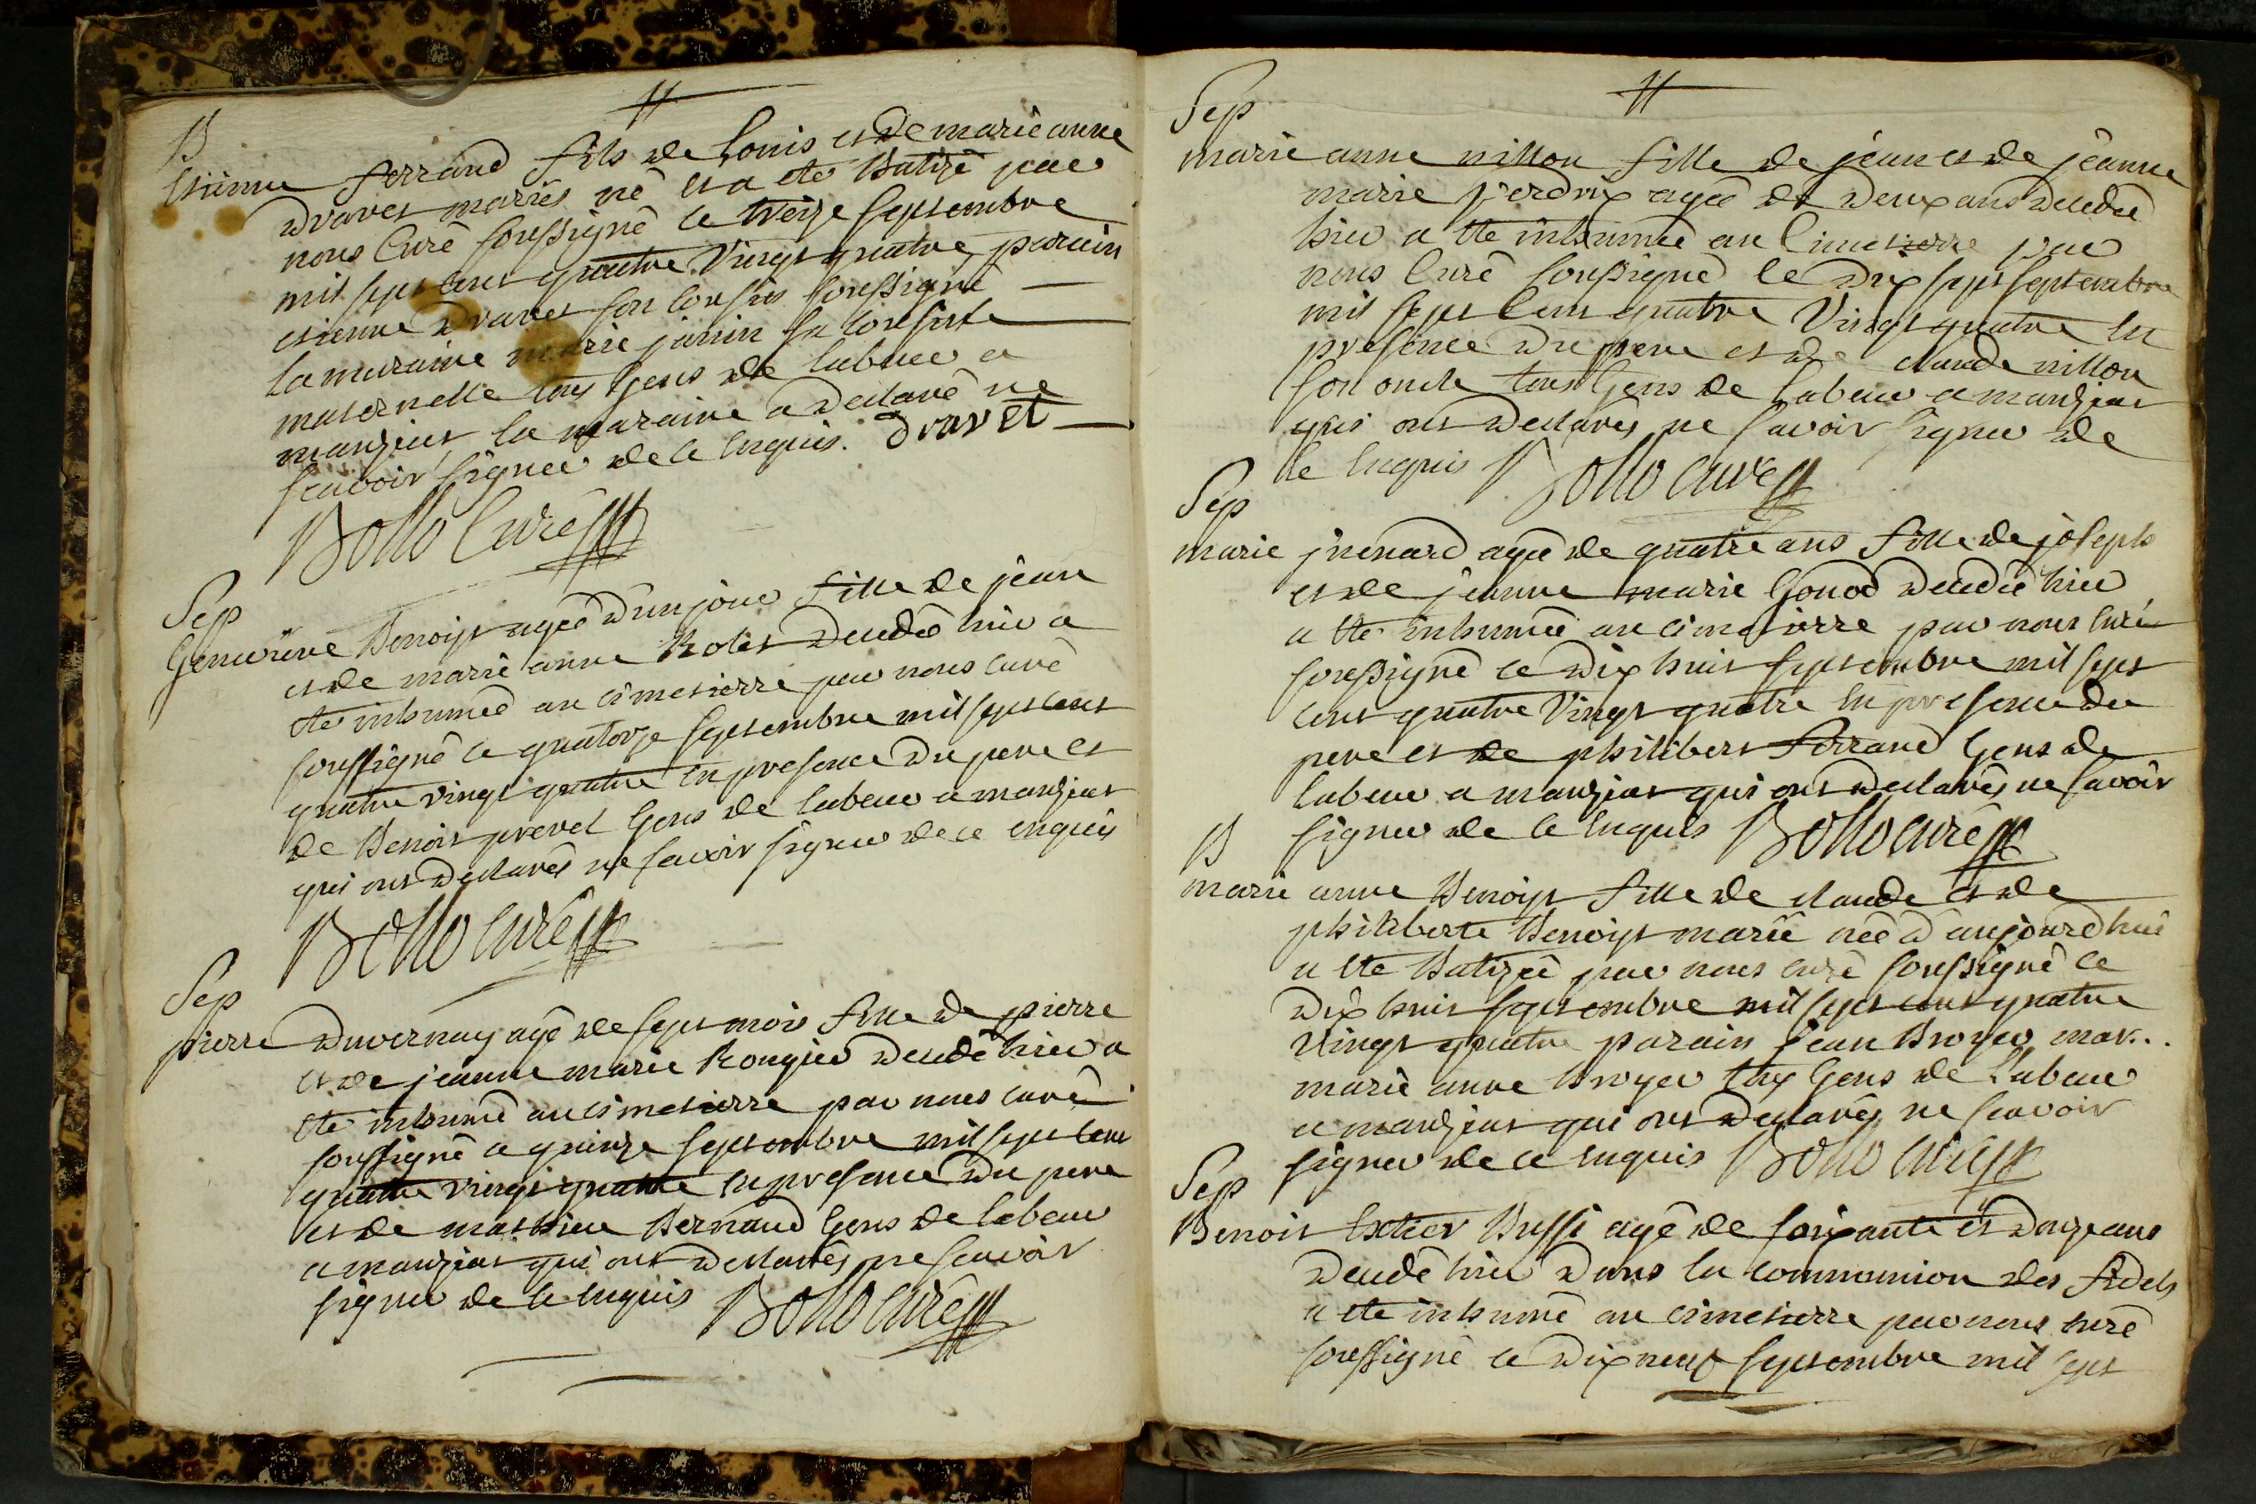 B
Etienne ferrand fils de Louis et de marie anne
Dravet mariés né et a ete Batizé par
nous Curé soussigné le treize septembre
mil sept cent quatre Vingt quatre, parain
etienne Dravet son cousin soussigné
la maraine marie janin sa cousine
maternelle tous Gens de labeur a
manziat la maraine a declaré ne
scavoir signer de ce enquis. Dravet
Bollo Curé
Sep
Genevieve Benoist agée d'un jour fille de jean
et de marie anne Rolet decedée hier a
ete inhumée au cimetierre par nous curé
soussigné ce quatorze septembre mil sept cent
quatre vingt quatre en presence du pere et
de Benoit prevel Gens de labeur a manziat
qui ont declarés ne scavoir signer de ce enquis
Bollo curé
Sep
pierre Duvernay agé de sept mois fille de pierre
et de jeanne marie Rongier decedé hier a
ete inhumé au cimetierre par nous curé
soussigné ce quinze septembre mil sept cent
quatre vingt quatre en presence du pere
et de mathieu Bernaud Gens de labeur
a manziat qui ont declarés ne scavoir
signer de ce enquis Bollo curé
Sep
marie anne nillon fille de jean et de jeanne
marie perdrix agée de deux ans decedée
hier a ete inhumée au Cimetierre par
nous Curé soussigné le dix sept septembre
mil sept Cent quatre Vingt quatre en
presence du pere et de claude nillon
son oncle tous Gens de Labeur a manziat
qui ont declarés ne savoir signer de
ce enquis Bollo curé
Sep
marie jvenard agée de quatre ans fille de joseph
et de jeanne marie Gonod decedée hier
a ete inhumée au cimetierre par nous curé
soussigné ce dix huit septembre mil sept
cent quatre Vingt quatre en presence du
pere et de philibert ferrand Gens de
labeur a manziat qui ont declarés ne savoir
signer de ce enquis Bollo curé
B
marie anne Benoist fille de claude et de
philiberte Benoist marié née d'aujourdhui
a ete Batizée par nous curé soussigné ce
dix huit septembre mil sept cent quatre
Vingt quatre parain jean Broyer mar...
marie anne Broyer tous Gens de Labeur
a manziat qui ont declarés ne scavoir
signer de ce enquis Bollo curé
Sep
Benoit Bussi agé de soixante et douze ans
decedé hier dans la communion des fidels
a ete inhumé au cimetierre par nous curé
soussigné ce dix neuf septembre mil sept